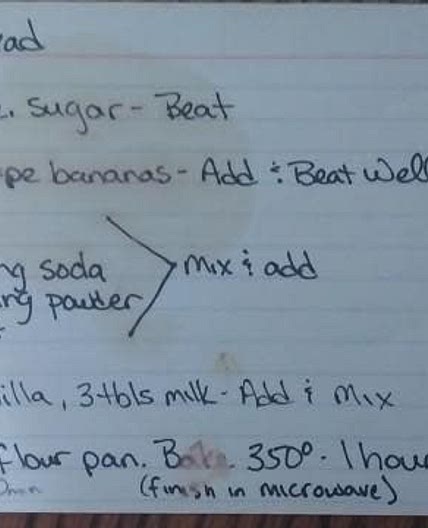 ead
c. sugar - Beat
pe bananas - Add & Beat Well
ng soda
Mix & add
ing powder
illa, 3 tbls milk - Add & Mix
flour pan. Bake. 350° - 1 hou
(finish in microwave)